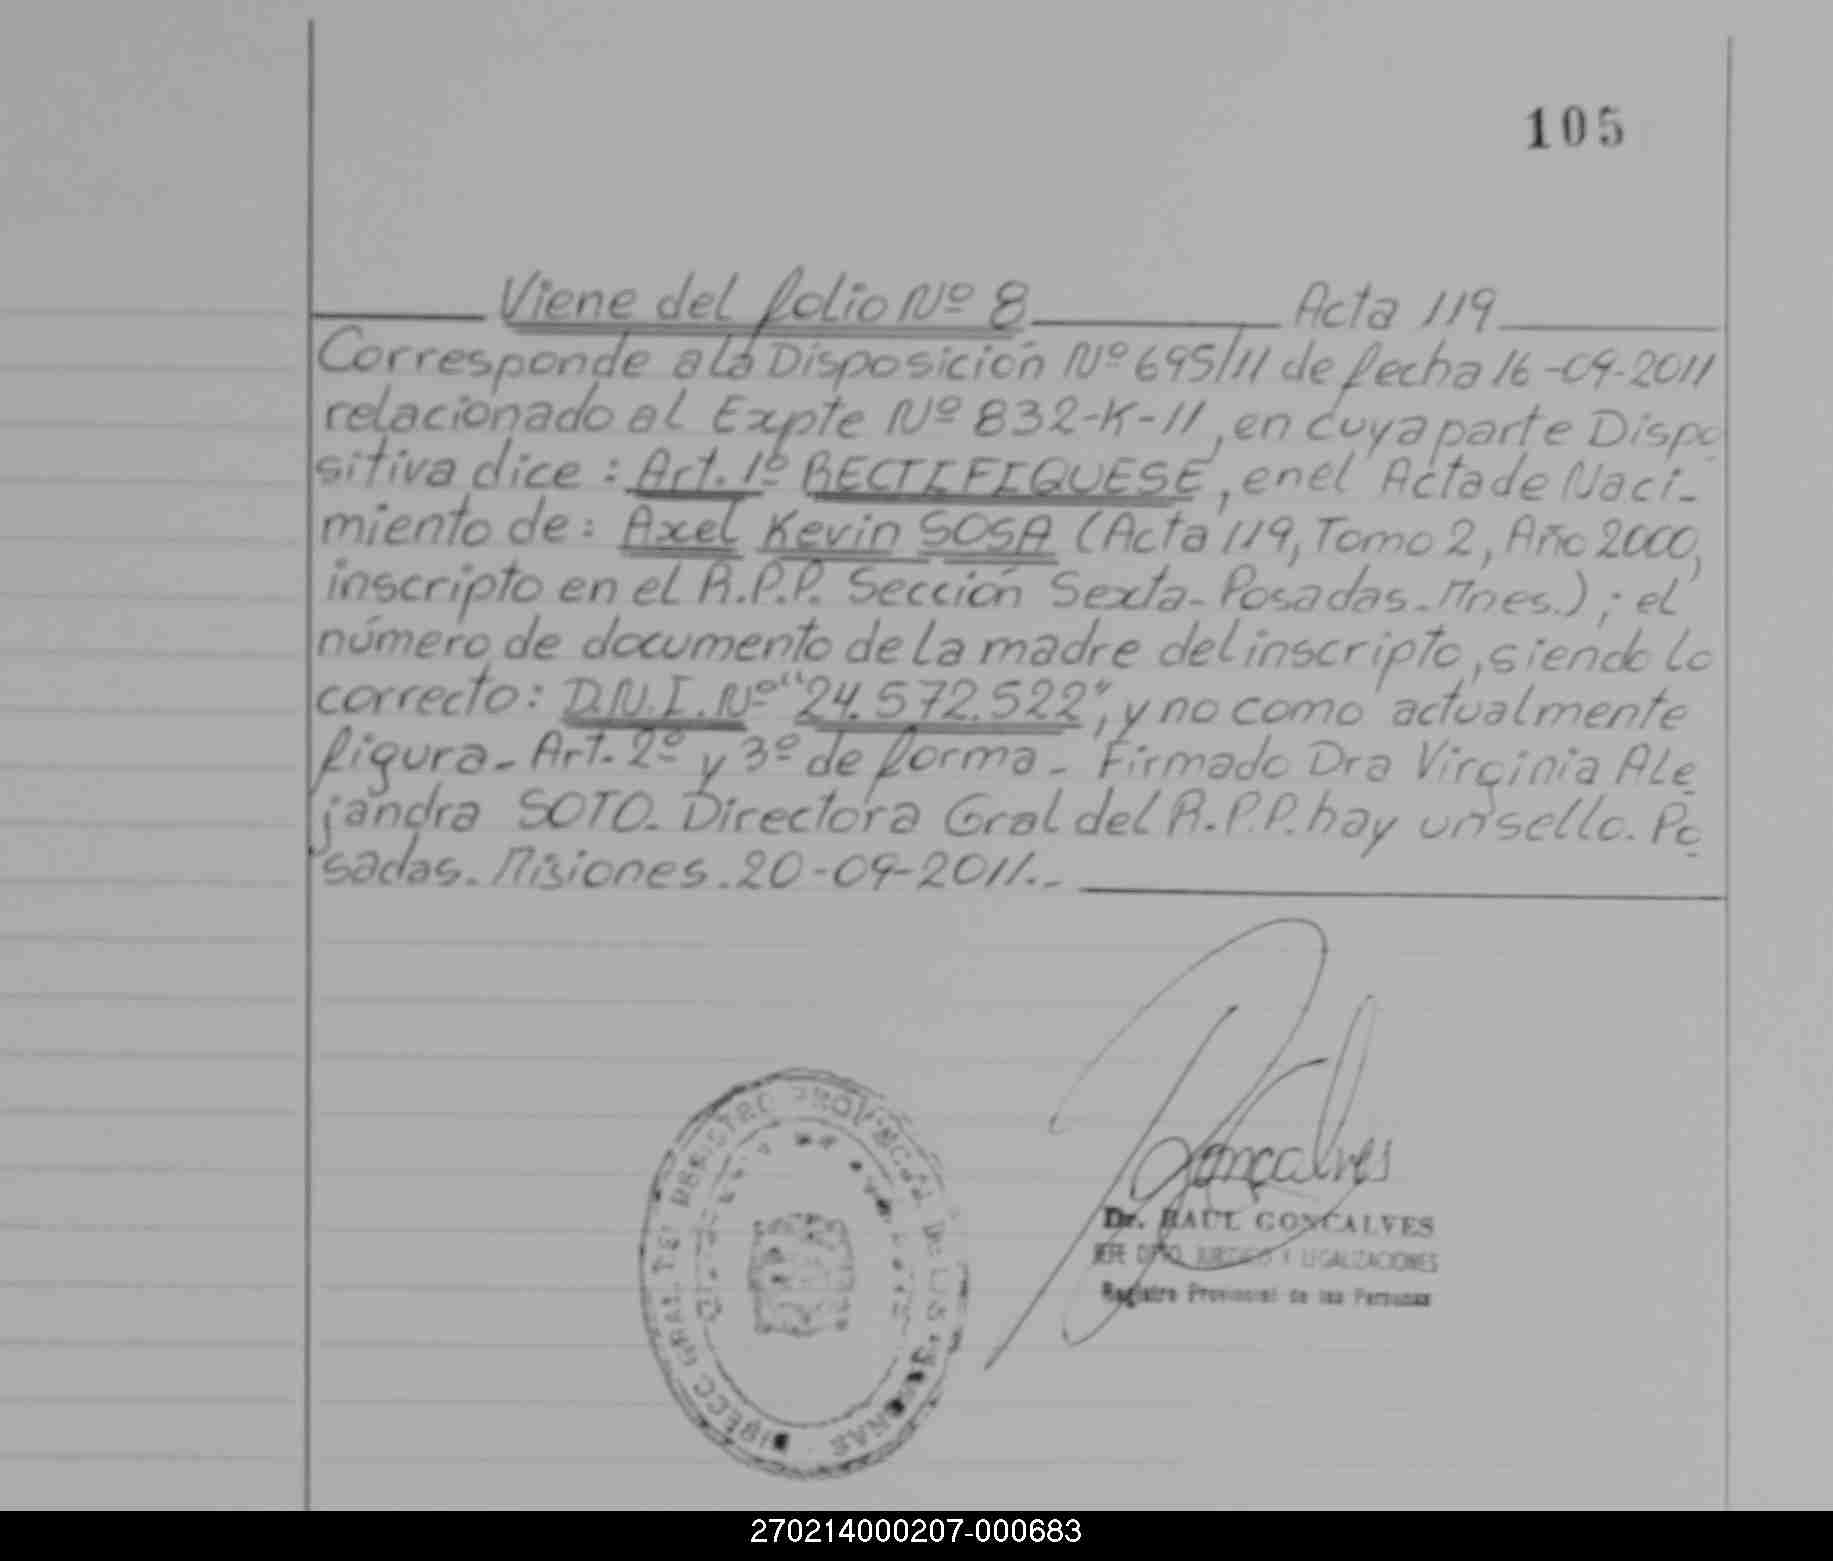 105
Viene del folio Nº 8 Acta 119
Corresponde a la Disposición Nº 695/11 de fecha 16-09-2011
relacionado al Expte Nº 832-K-11, en cuya parte Dispo
sitiva dice: Art. 1º RECTIFIQUESE, en el Acta de Naci-
miento de: Axel Kevin SOSA (Acta 119, Tomo 2, Año 2000,
inscripto en el R.P.P. Sección Sexta-Posadas-Mnes.); el
número de documento de la madre del inscripto, siendo lo
correcto: D.N.I. Nº "24.572.522", y no como actualmente
figura- Art. 2º y 3º de forma- Firmado Dra Virginia Ale
jandra SOTO- Directora Gral del R.P.P. hay un sello. Po
sadas-Misiones.20-09-2011.-
DIRECC. GRAL. DEL REGISTRO PROVINCIAL DE LAS PERSONAS
Goncalves
Dr. RAUL GONCALVES
JEFE DPTO. JURIDICO Y LEGALIZACIONES
Registro Provincial de las Personas
270214000207-000683